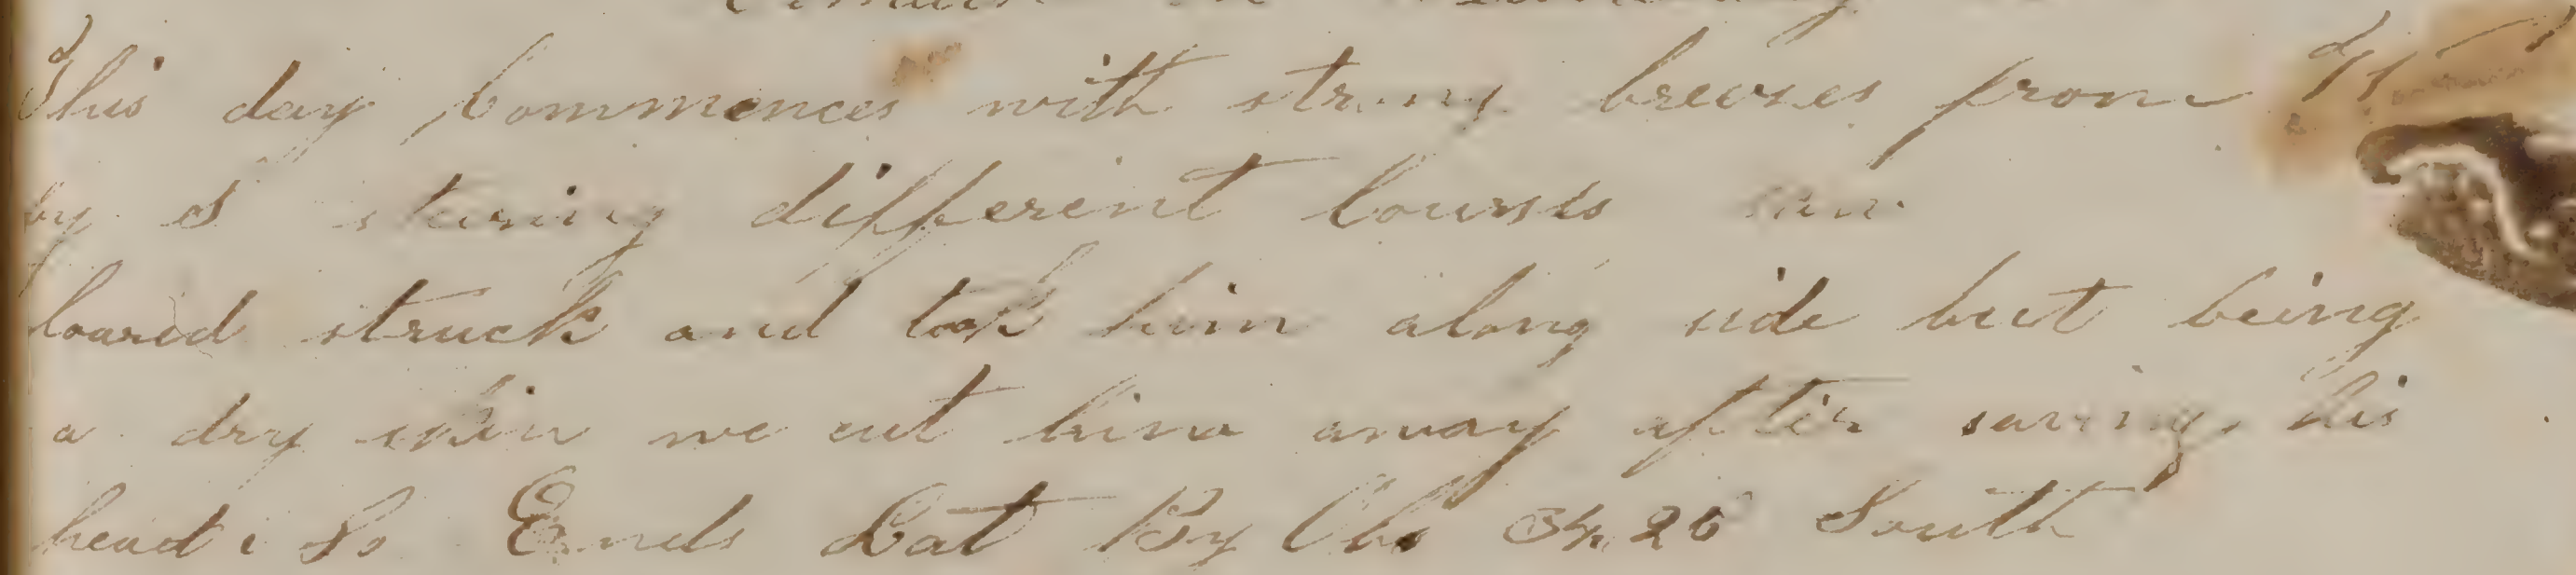 This day Commences with strong breezes from
by S stering different Courses saw
loared struck and took him along side but being
a dry skin we cut him away after saving his
head : So Ends Lat By Obs 34,26 South